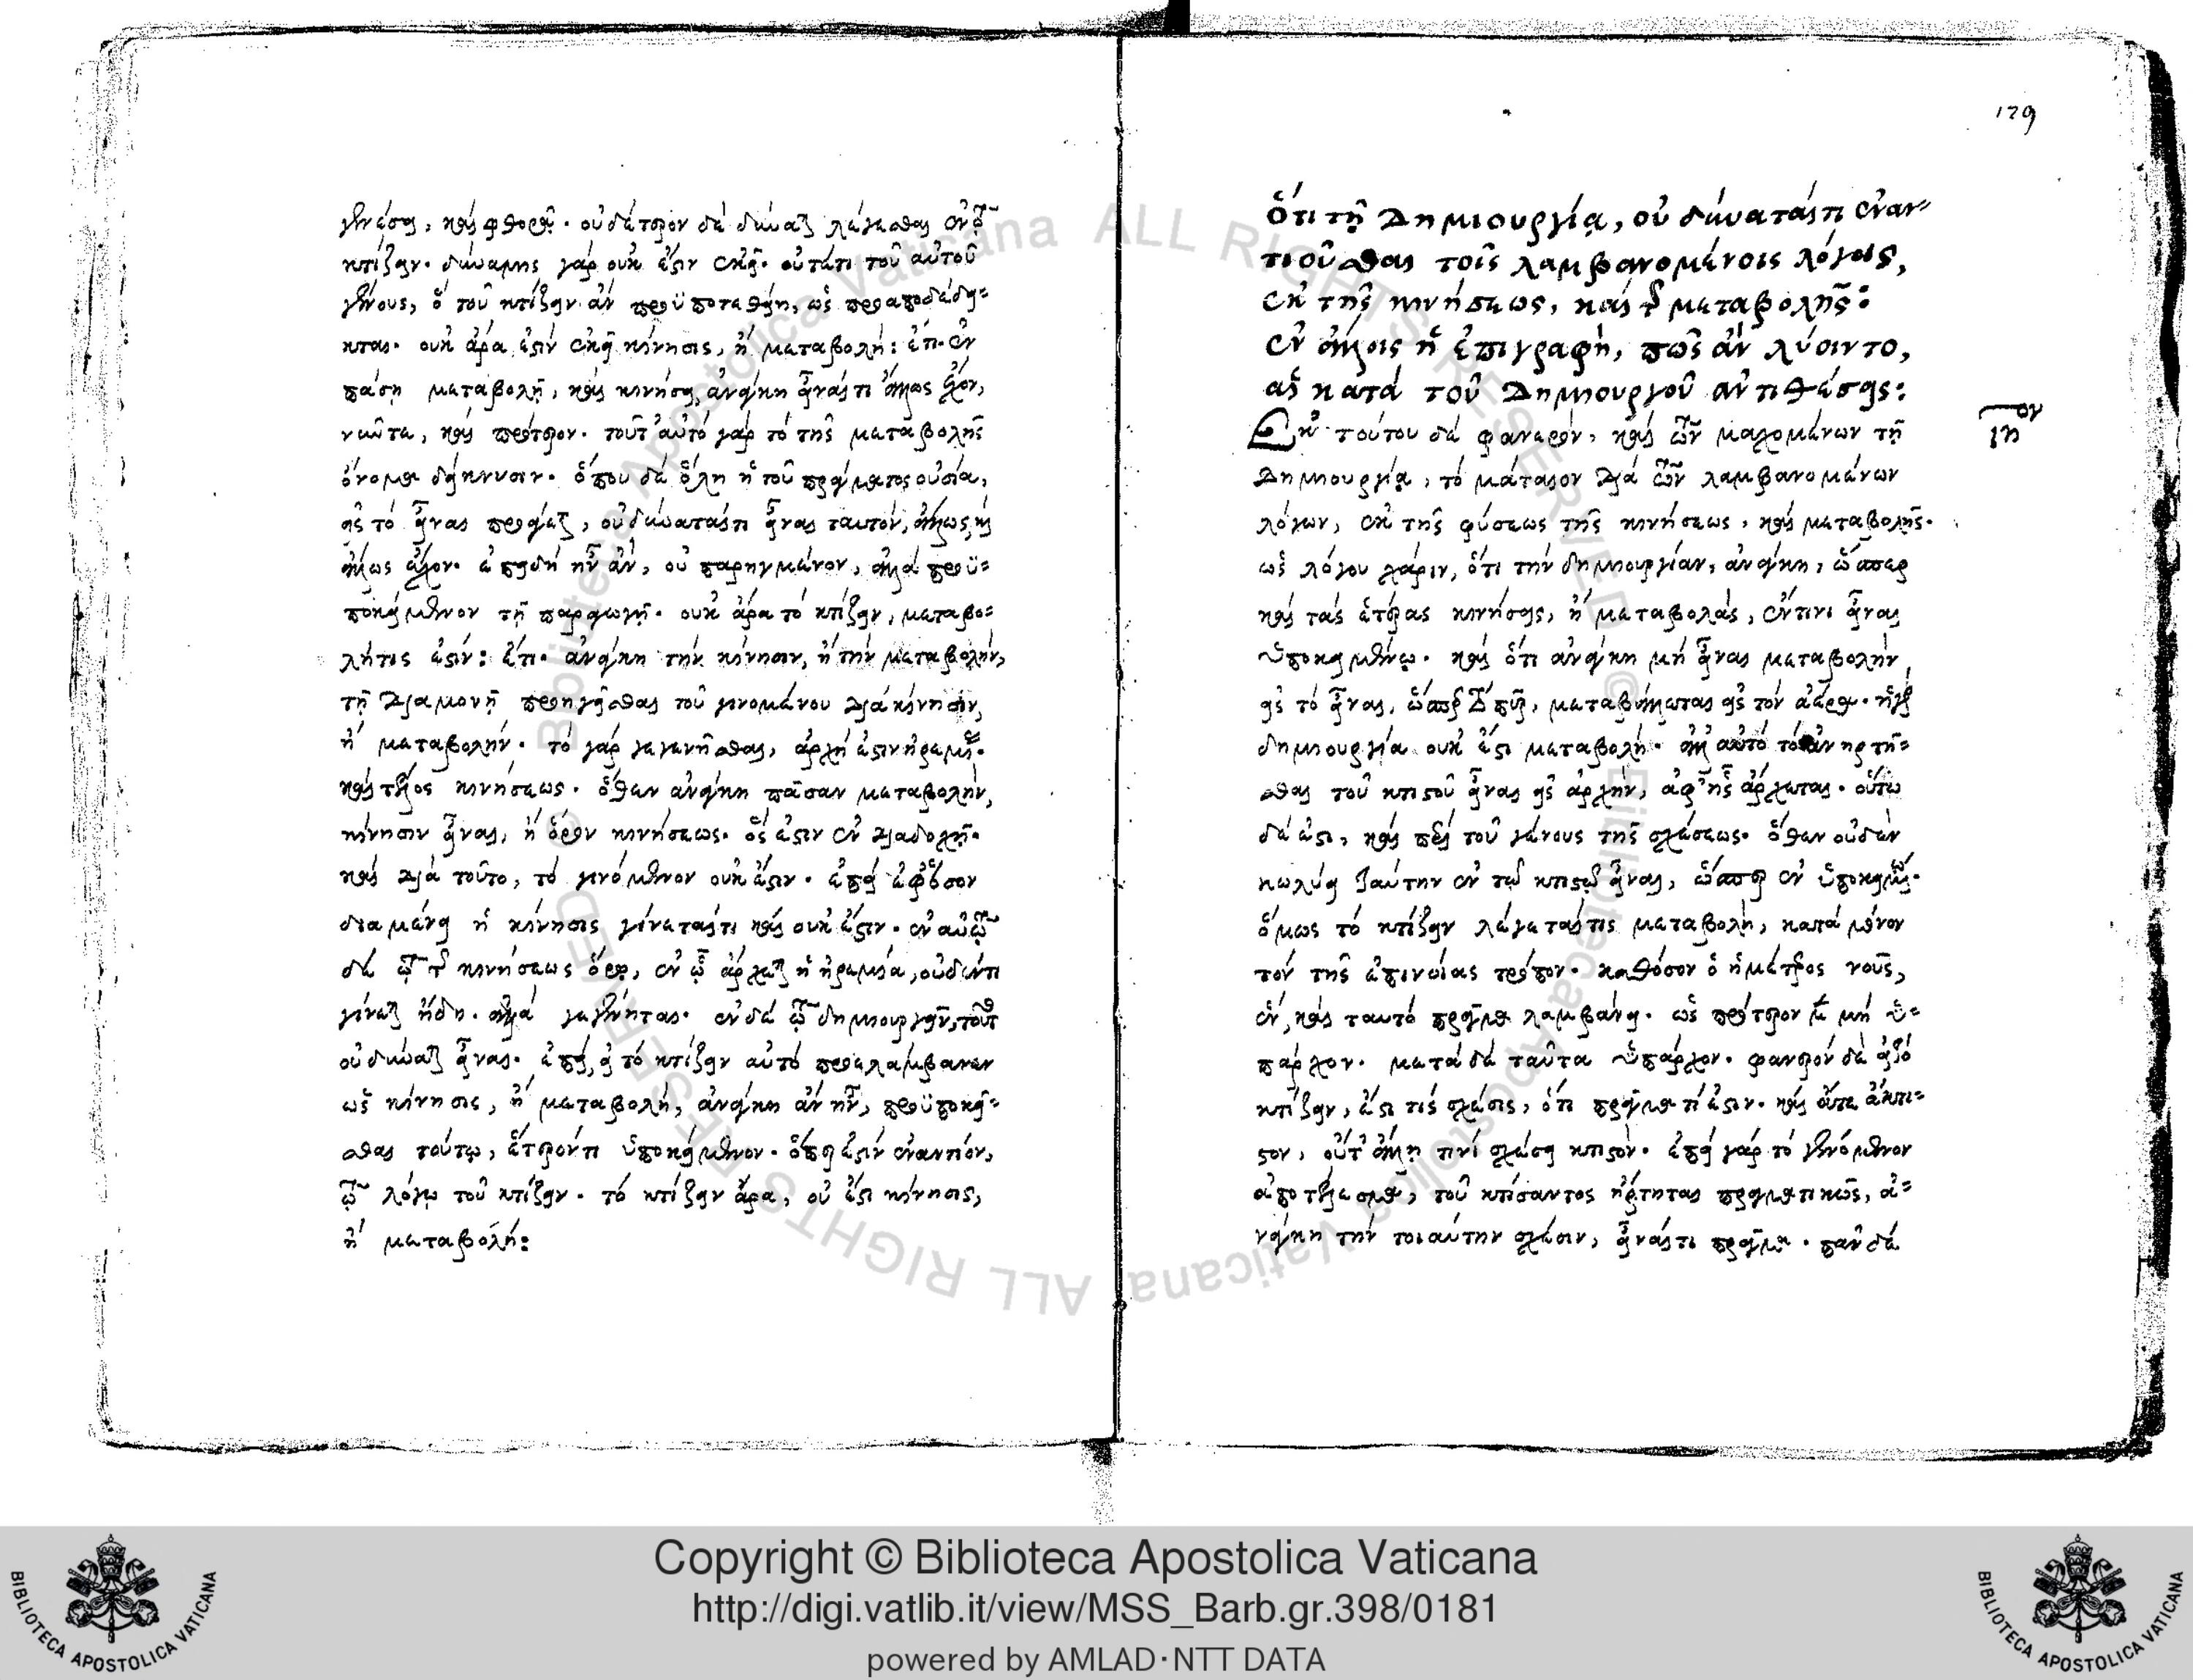 γενέσει, καὶ φθορᾷ. οὐδέτερον δὲ δύναται λέγεσθαι ἐν τῷ
κτίζειν. δύναμις γὰρ οὐκ ἔστιν ἐκεῖ. οὔτέ τι τοῦ αὐτοῦ
γένους, ὃ τοῦ κτίζειν ἂν προϋποτεθείη, ὡς προαποδέδει-
κται. οὐκ ἄρα ἐστὶν ἐκεῖ κίνησις, ἢ μεταβολή: ἔτι. ἐν
πάσῃ μεταβολῇ, καὶ κινήσει, ἀνάγκη εἶναί τι ἄλλως ἔχον,
νῦν τε, καὶ πρότερον. τοῦτ' αὐτὸ γὰρ τὸ τῆς μεταβολῆς
ὄνομα δείκνυσιν. ὅπου δὲ ὅλη ἡ τοῦ πράγματος οὐσία,
εἰς τὸ εἶναι προάγεται, οὐ δύναταί τι εἶναι ταυτὸν, ἄλλως καὶ
ἄλλως ἔχον. ἐπειδὴ ἦν ἂν, οὐ παρηγμένον, ἀλλὰ προϋ-
ποκείμενον τῇ παραγωγῇ. οὐκ ἄρα τὸ κτίζειν, μεταβο-
λή τις ἐστίν: ἔτι. ἀνάγκη τὴν κίνησιν, ἢ τὴν μεταβολὴν,
τῇ διαμονῇ προηγεῖσθαι τοῦ γινομένου διὰ κίνησιν,
ἢ μεταβολήν. τὸ γὰρ γεγενῆσθαι, ἀρχή ἐστιν ἠρεμίας.
καὶ τέλος κινήσεως. ὅθεν ἀνάγκη πᾶσαν μεταβολὴν,
κίνησιν εἶναι, ἢ ὅρον κινήσεως. ὅς ἐστιν ἐν διαδοχῇ.
καὶ διὰ τοῦτο, τὸ γινόμενον οὐκ ἔστιν. ἐπεὶ ἐφ' ὅσον
διαμένει ἡ κίνησις γίνεταί τι καὶ οὐκ ἔστιν. ἐν αὐτῷ
δὲ τῷ τῆς κινήσεως ὅρῳ, ἐν ᾧ ἄρχεται ἡ ἠρεμία, οὐδέν τι
γίνεται ἤδη. ἀλλὰ γεγένηται. ἐν δὲ τῷ δημιουργεῖν, τοῦτ'
οὐ δύναται εἶναι. ἐπεὶ, εἰ τὸ κτίζειν αὐτὸ προελάμβανεν
ὡς κίνησις, ἢ μεταβολὴ, ἀνάγκη ἂν ἦν, προϋποκεῖ-
σθαι τούτῳ, ἕτερόν τι ὑποκείμενον. ὅπερ ἐστὶν ἐναντίον,
τῷ λόγῳ τοῦ κτίζειν. τὸ κτίζειν ἄρα, οὐ ἔστι κίνησις,
ἢ μεταβολή:
129
ὅτι τῇ Δημιουργίᾳ, οὐ δύναταί τι ἐναν-
τιοῦσθαι τοῖς λαμβανομένοις λόγοις,
ἐκ τῆς κινήσεως, καὶ τῆς μεταβολῆς:
ἐν ἄλλοις ἡ ἐπιγραφὴ, πῶς ἂν λύοιντο,
αἱ κατὰ τοῦ Δημιουργοῦ ἀντιθέσεις:
ιη ον
Ἐκ τούτου δὲ φανερὸν, καὶ τῶν μαχομένων τῇ
Δημιουργίᾳ, τὸ μάταιον διὰ τῶν λαμβανομένων
λόγων, ἐκ τῆς φύσεως τῆς κινήσεως, καὶ μεταβολῆς.
ὡς λόγου χάριν, ὅτι τὴν δημιουργίαν, ἀνάγκη, ὥσπερ
καὶ τὰς ἑτέρας κινήσεις, ἢ μεταβολὰς, ἔν τινι εἶναι
ὑποκειμένῳ. καὶ ὅτι ἀνάγκη μὴ εἶναι μεταβολὴν
εἰς τὸ εἶναι, ὥσπερ τὸ πῦρ, μεταβάλλεται εἰς τὸν ἀέρα. ἡ γὰρ
δημιουργία οὐκ ἔστι μεταβολή. ἀλλ' αὐτὸ τὸ ἀνηρτῆ-
σθαι τοῦ κτιστοῦ εἶναι εἰς ἀρχὴν, ἀφ' ἧς ἄρχεται. οὕτω
δέ ἐστι, καὶ περὶ τοῦ γένους τῆς σχέσεως. ὅθεν οὐδὲν
κωλύει ταύτην ἐν τῷ κτιστῷ εἶναι, ὥσπερ ἐν ὑποκειμένῳ.
ὅμως τὸ κτίζειν λέγεταί τις μεταβολὴ, κατὰ μόνον
τὸν τῆς ἐπινοίας τρόπον. καθόσον ὁ ἡμέτερος νοῦς,
ἓν, καὶ ταυτὸ πρᾶγμα λαμβάνει. ὡς πρότερον μὲν μὴ ὑ-
πάρχον. μετὰ δὲ ταῦτα ὑπάρχον. φανερὸν δὲ εἰ τὸ
κτίζειν, ἔστι τὶς σχέσις, ὅτι πρᾶγμα τί ἐστιν. καὶ οὔτε ἄκτι-
στον, οὔτ' ἄλλῃ τινὶ σχέσει κτιστόν. ἐπεὶ γὰρ τὸ γενόμενον
ἀποτέλεσμα, τοῦ κτίσαντος ἤρτηται πραγματικῶς, ἀ-
νάγκη τὴν τοιαύτην σχέσιν, εἶναί τι πρᾶγμα. πᾶν δὲ
Copyright © Biblioteca Apostolica Vaticana
http://digi.vatlib.it/view/MSS_Barb.gr.398/0181
powered by AMLAD·NTT DATA